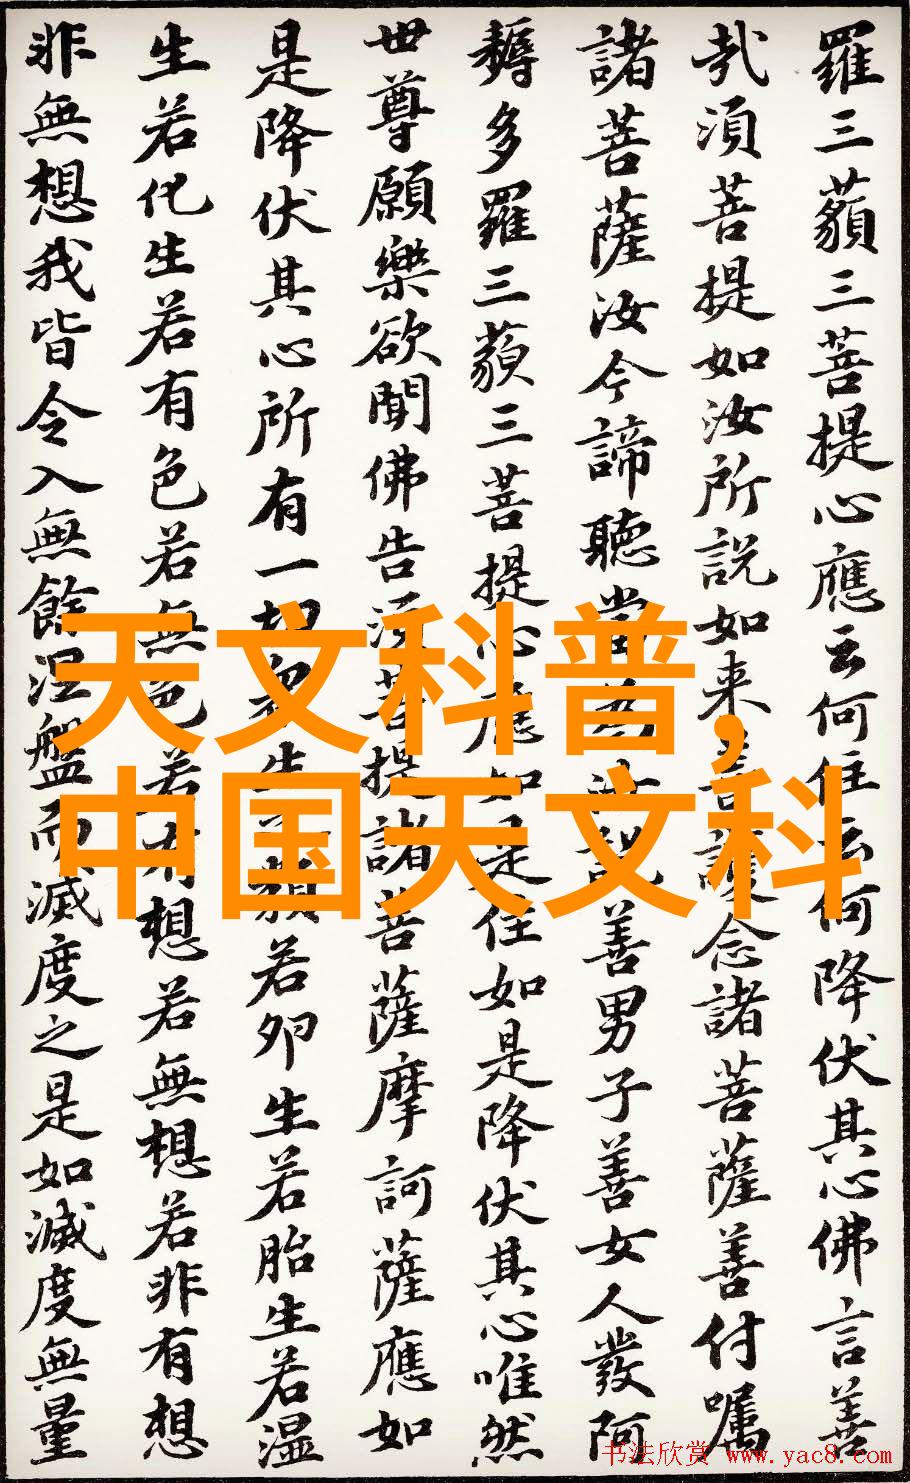 羅三藐三菩提心應云何住云何降伏其心佛言善
哉須菩提如汝所說如来善護念諸菩薩善付囑
諸菩薩汝今諦聽當為汝說善男子善女人發阿
耨多羅三藐三菩提心應如是住如是降伏其心唯然
世尊願樂欲聞佛告須菩提諸菩薩摩訶薩應如
是降伏其心所有一切眾生之類若卵生若胎生若濕
生若化生若有色若無色若有想若無想若非有想
非無想我皆令入無餘涅盤而滅度之是如滅度無量
天文科普,
中国天文科
书法欣赏 www.yac8.com